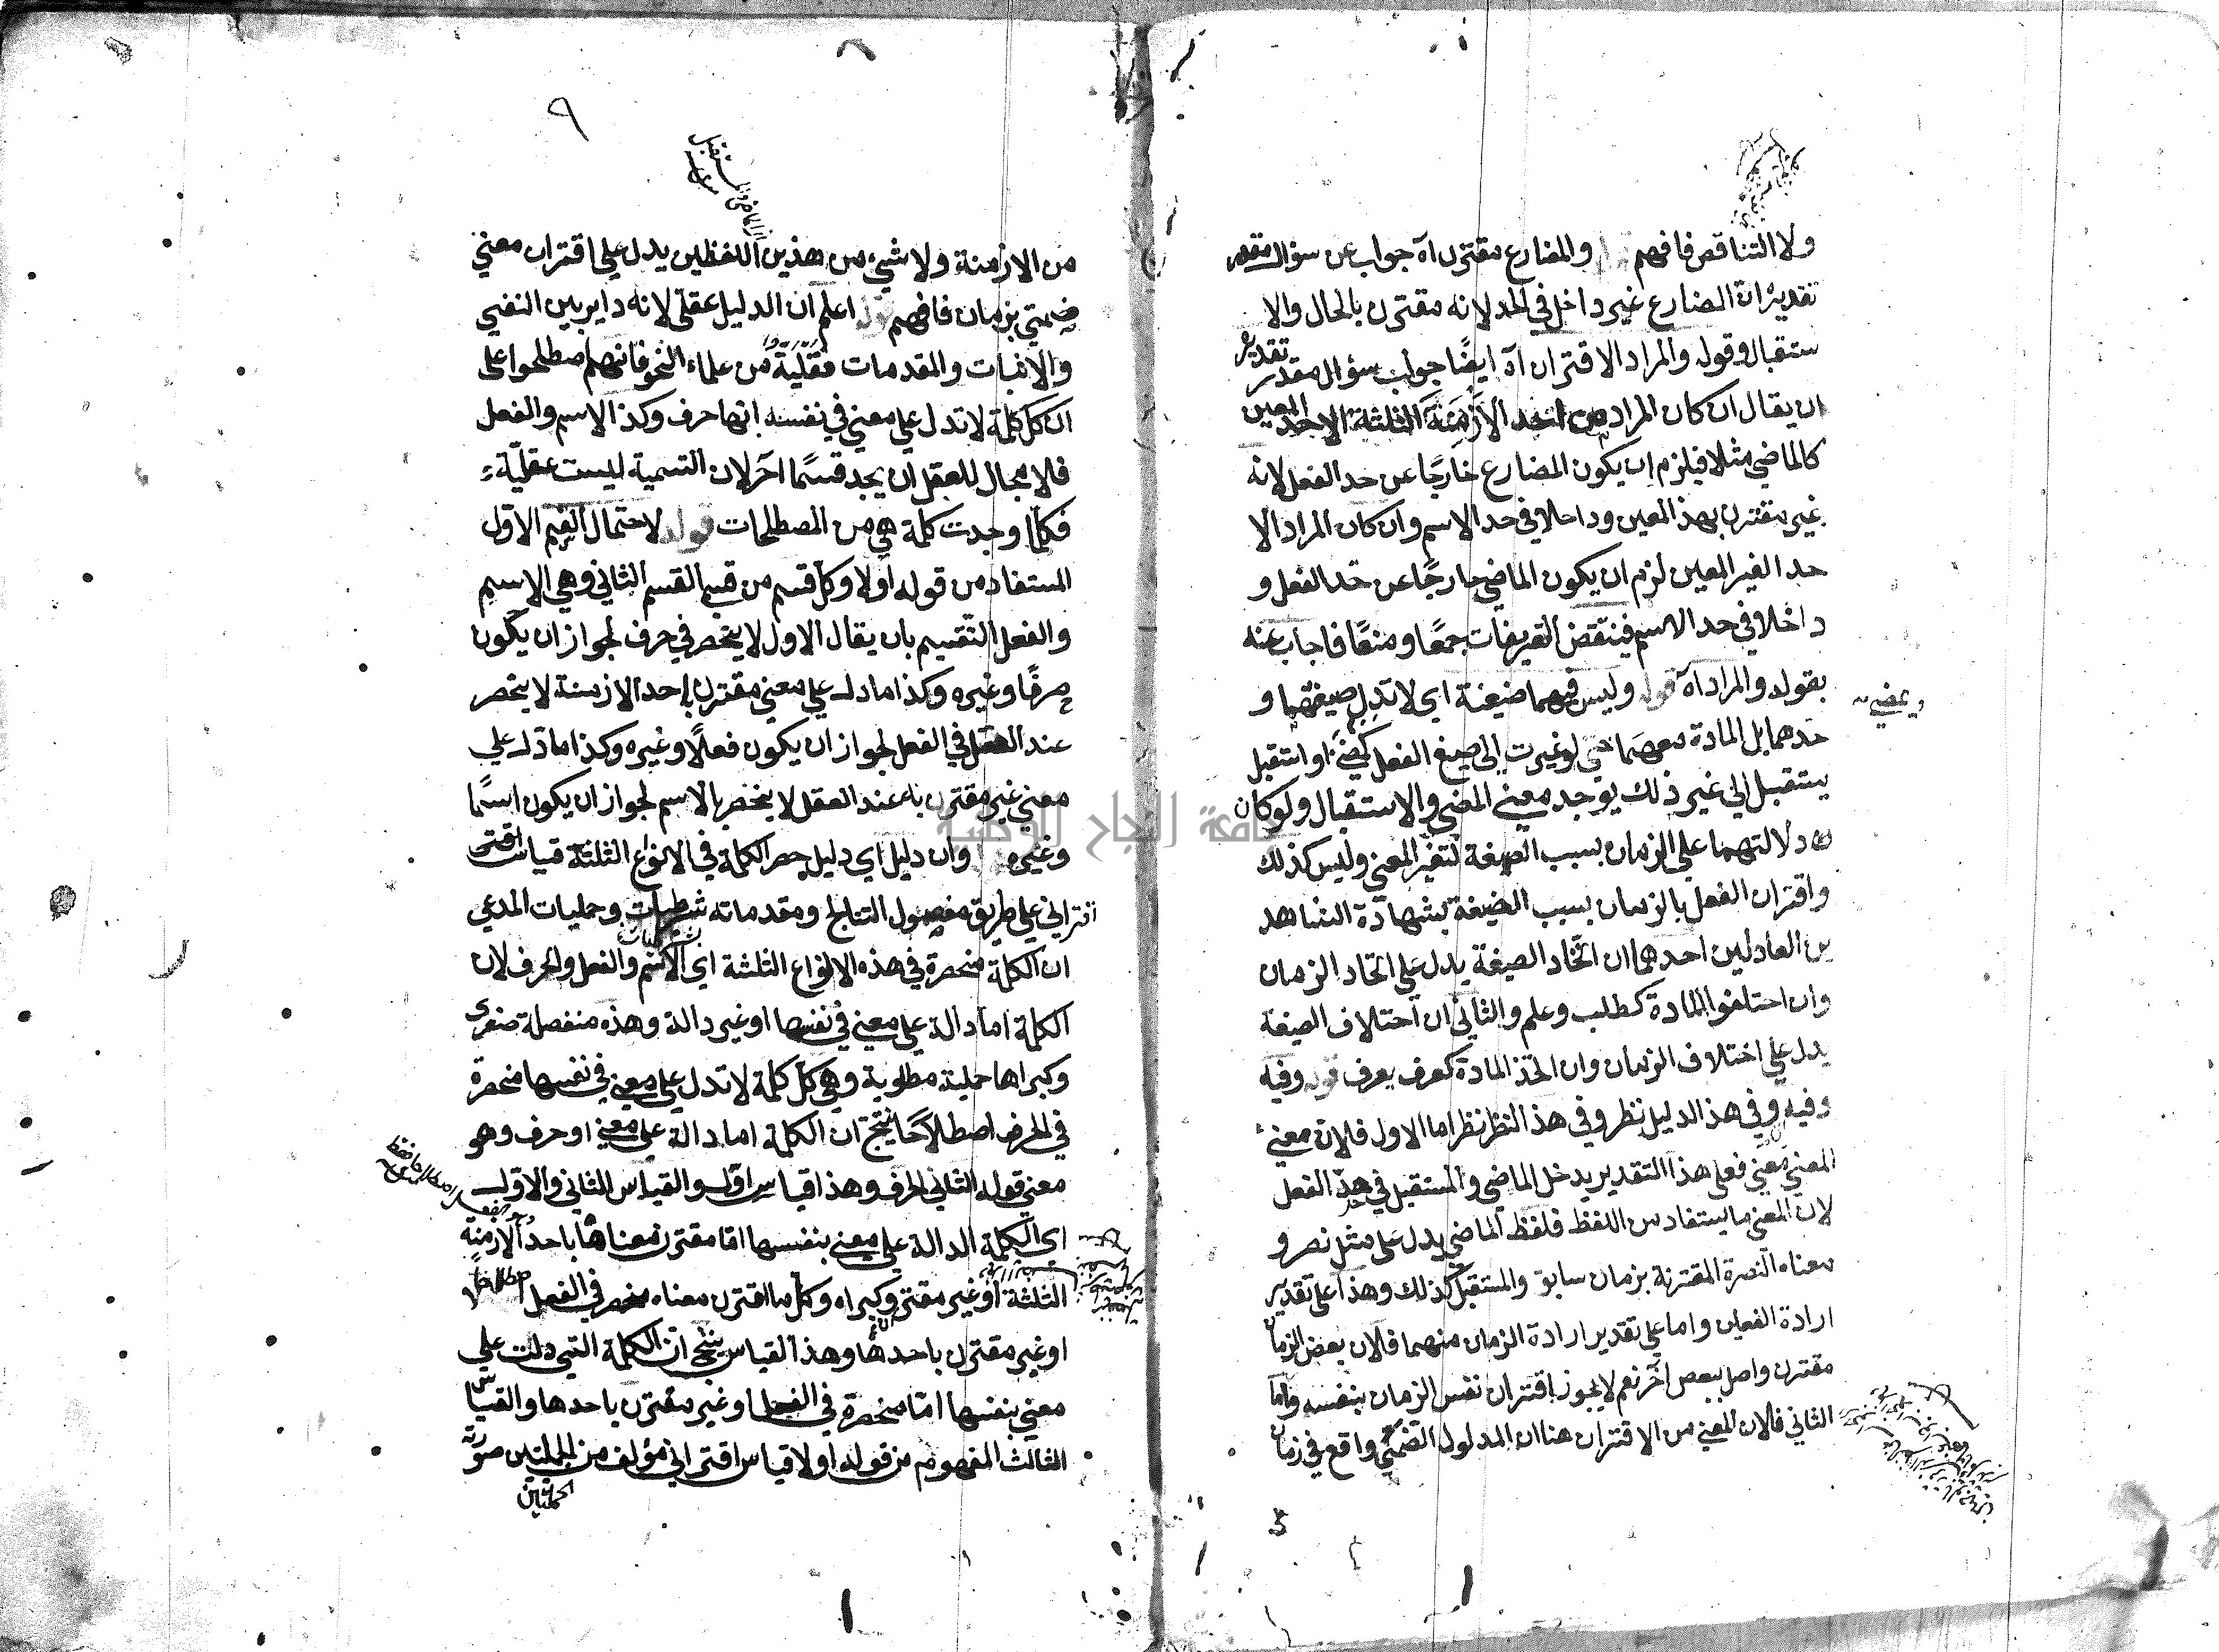 ولا التناقص فافهم والمضارع مقترن آه جواب عن سؤال مقدر
تقديره ان المضارع غير داخل في الحد لانه مقترن بالحال والا
ستقبال وقوله والمراد الاقتران آه ايضًا جواب سؤال مقدر تقديره
ان يقال ان كان المراد من احد الازمنة الثلثة الاحد المعين
كالماضي مثلا فيلزم ان يكون المضارع خارجًا عن حد الفعل لانه
غير مقترن بهذ المعين وداخلا في حد الاسم وان كان المراد الا
حد الغير المعين لزم ان يكون الماضي خارجًا عن حد الفعل و
داخلا في حد الاسم فينتقض التعريفات جمعًا ومنعًا فاجاب عنه
بقوله والمراد آه قوله وليس فيهما ضيغة اي لا تدل صيغتهما و
حدهما بل المادة معهما حتي لو غيرت الى صيغ الفعل كمضى او استقبل
يستقبل الي غير ذلك يوجد معني المضي والاستقبال ولو كان
دلالتهما علي الزمان بسبب الصيغة لتغير المعني وليس كذلك
واقتران الفعل بالزمان بسبب الصيغة بشهادة الشاهد
ين العادلين احدهما ان اتحاد الصيغة يدل علي اتحاد الزمان
وان احتلفوا المادة كطلب وعلم والثاني ان احتلاف الصيغة
يدل علي اختلاف الزمان وان اتحد المادة كعرف يعرف قوله وفيه
وفيه وفي هذ الدليل نظر وفي هذ النظر نظر اما الاول فلان معني
المعني معني فعلى هذا التقدير يدخل الماضي والمستقبل في حد الفعل
لان المعني ما يستفاد من اللفظ فلفظ الماضي يدل على مثل نصر و
معناه النصرة المقترنة بزمان سابق والمستقبل كذلك وهذا على تقدير
ارادة الفعلين واما علي تقدير ارادة الزمان منهما فلان بعض الزمان
مقترن واصل ببعض آخر نعم لا يجوز اقتران نفس الزمان بنفسه واما
الثاني فلان المعني من الاقتران هنا ان المدلول التضمني واقع في زمان
ويمضي
٩
من الازمنة ولا شيء من هذين اللفظين يدل علي اقتران معني
ضمني بزمان فافهم قوله اعلم ان الدليل عقلي لانه داير بين النفي
والاثبات والمقدمات نقلية من علماء النحو فانهم اصطلحوا على
ان كل كلمة لا تدل علي معني في نفسه انها حرف وكذ الاسم والفعل
فلا مجال للعقل ان يجد قسمًا آخر لان التسمية ليست عقلية
فكلما وجدت كلمة هي من المصطلحات قوله لاحتمال القسم الاول
المستفاد من قوله اولا وكل قسم من قسم القسم الثاني وهي الاسم
والفعل التقسيم بان يقال الاول لا ينحصر في حرف لجواز ان يكون
حرفًا وغيره وكذا ما دل علي معني مقترن باحد الازمنة لا ينحصر
عند العقل في الفعل لجواز ان يكون فعلًا وغيره وكذا ما دل علي
معني غير مقترن باء عند العقل لا ينحصر بالاسم لجواز ان يكون اسمًا
وغيره وان دليل اي دليل حصر الكلمة في الانواع الثلثة قياس اقتر
اقتراني علي طريق مفصول النتايج ومقدماته شرطيات وحمليات المدعي
ان الكلمة منحصرة في هذه الانواع الثلثة اي الاسم والفعل والحرف لان
الكلمة اما دالة علي معني في نفسها او غير دالة وهذه منفصلة صغرى
وكبراها حملية مطلوبة وهي كل كلمة لا تدل علي معني في نفسها منحصرة
في الحرف اصطلاحًا ينتج ان الكلمة اما دالة علي معني او حرف وهو
معني قوله الثاني الحرف وهذا قياس اول والقياس الثاني والاول
اي الكلمة الدالة علي معني بنفسها اما مقترن معناها باحد الازمنة
الثلثة او غير مقترن وكبراه وكل ما اقترن معناه منحصر في الفعل اصطلاحا
او غير مقترن باحدها وهذا القياس ينتج ان الكلمة التي دلت علي
معني بنفسها امّا منحصرة في الفعل او غير مقترن باحدها والقياس
الثالث المفهوم من قوله اولا قياس اقتراني مؤلف من الجملتين صورته
الحمليتين
جامعة النجاح الوطنية